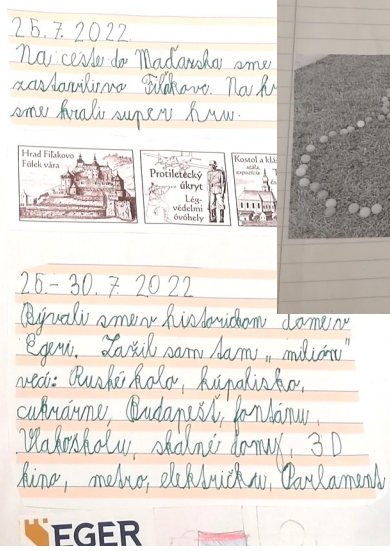 25.7.2022
Na ceste do Maďarska sme
zastavili vo Fiľakove. Na h
sme hrali super hru.
Hrad Fiľakovo
Fülek vára
Protiletecký
úkryt
Lég-
védelmi
óvóhely
Kostol a klá
stála
expozícia
26.-30.7.2022
Bývali sme v historickom dome v
Egeri. Zažil som tam „milión"
vecí: Ruské kolo, kúpalisko,
cukrárne, Budapešť, fontánu,
Vlakoškolu, skalné domy, 3D
kino, metro, električku, Parlament
EGER